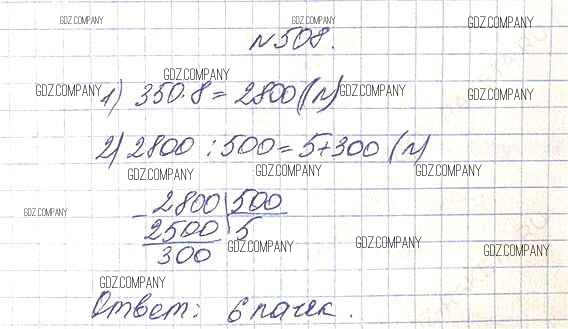 GDZ.COMPANY GDZ.COMPANY GDZ.COMPANY
N 508.
GDZ.COMPANY
GDZ.COMPANY GDZ.COMPANY GDZ.COMPANY
1) 350·8 = 2800 (л)
2) 2800 : 500 = 5+300 (л)
GDZ.COMPANY GDZ.COMPANY GDZ.COMPANY
- 2800 | 500
GDZ.COMPANY
2500 | 5
GDZ.COMPANY GDZ.COMPANY GDZ.COMPANY
300
GDZ.COMPANY
Ответ: 6 пачек.